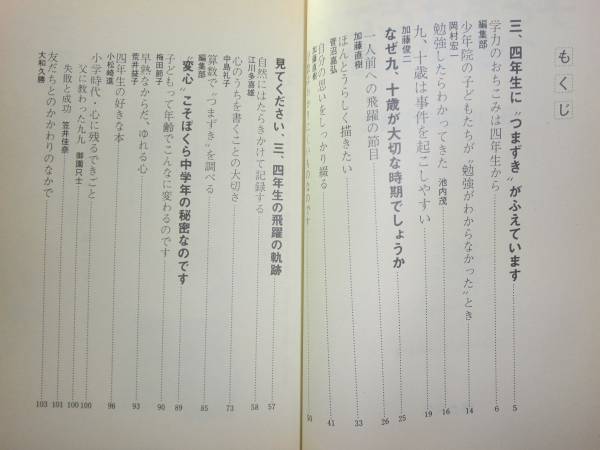 もくじ
三、四年生に〝つまずき〟がふえています……5
学力のおちこみは四年生から……6
編集部
少年院の子どもたちが〝勉強がわからなかった〟とき……14
岡村宏一
勉強したらわかってきた 池内茂……16
九、十歳は事件を起こしやすい……19
加藤俊二
なぜ九、十歳が大切な時期でしょうか……25
一人前への飛躍の節目……26
加藤直樹
ほんとうらしく描きたい……33
菅沼嘉弘
自分の思いをしっかり綴る……41
見てください、三、四年生の飛躍の軌跡……57
自然にはたらきかけて記録する……58
江川多喜雄
心のうちを書くことの大切さ……73
中島礼子
算数で〝つまずき〟を調べる……85
編集部
〝変心〟こそぼくら中学年の秘密なのです……89
子どもって年齢でこんなに変わるのです……90
梅田節子
早熟なからだ、ゆれる心……93
荒井益子
四年生の好きな本……96
小松崎進
小学時代・心に残るできごと
父に教わった九九 御園只士……100
失敗と成功 笠井佳奈……100
友だちとのかかわりのなかで……101
大和久勝……103